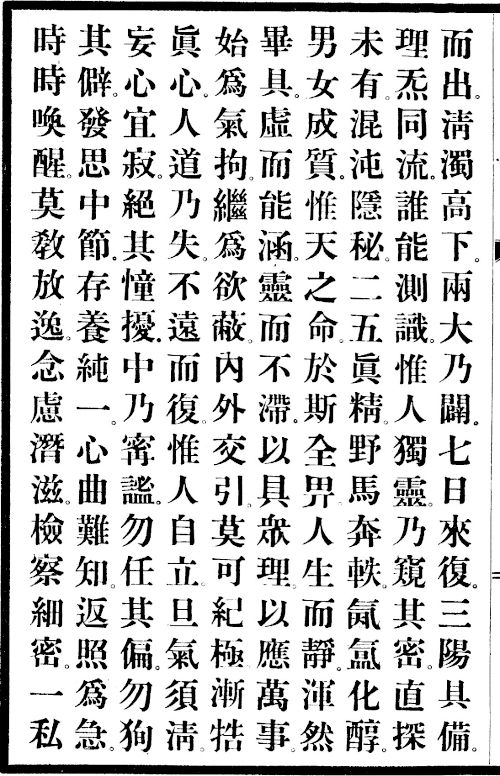 而出。淸濁高下。兩大乃闢。七日來復。三陽具備。
理炁同流。誰能測識。惟人獨靈。乃窺其密。直探
未有。混沌隱秘。二五眞精。野馬奔軼。氤氳化醇。
男女成質。惟天之命。於斯全畀。人生而靜。渾然
畢具。虛而能涵。靈而不滯。以具衆理。以應萬事。
始爲氣拘。繼爲欲蔽。內外交引。莫可紀極。漸牿
眞心。人道乃失。不遠而復。惟人自立。旦氣須淸。
妄心宜寂。絕其憧擾。中乃寗謐。勿任其偏。勿狥
其僻。發思中節。存養純一。心曲難知。返照爲急。
時時喚醒。莫敎放逸。念慮潛滋。檢察細密。一私